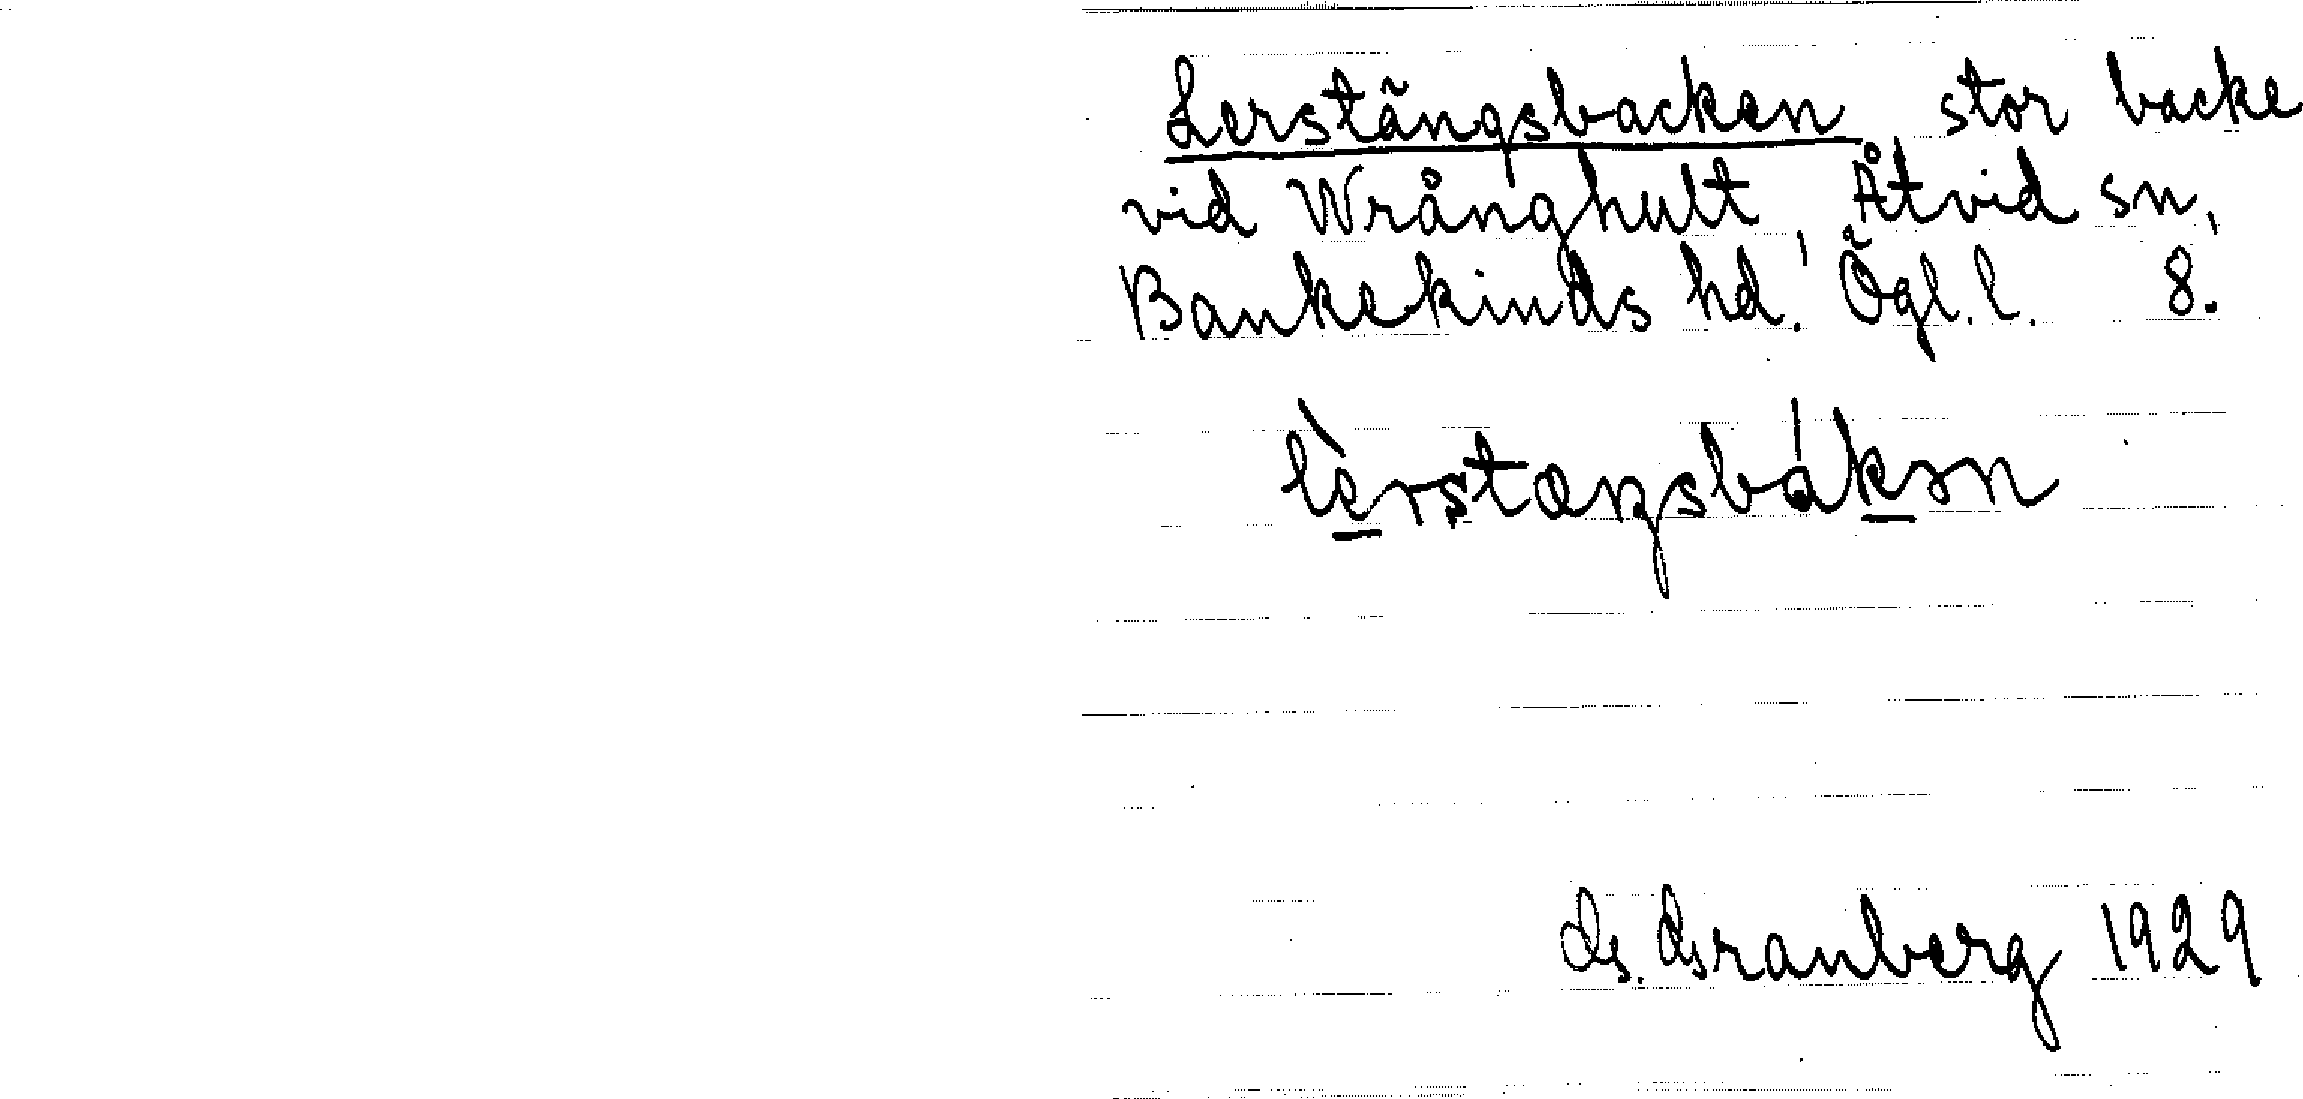 Lerstängsbacken stor backe
vid Wrånghult, Åtvid sn,
Bankekinds hd. Ögl. l. 8.
G. Granberg 1929